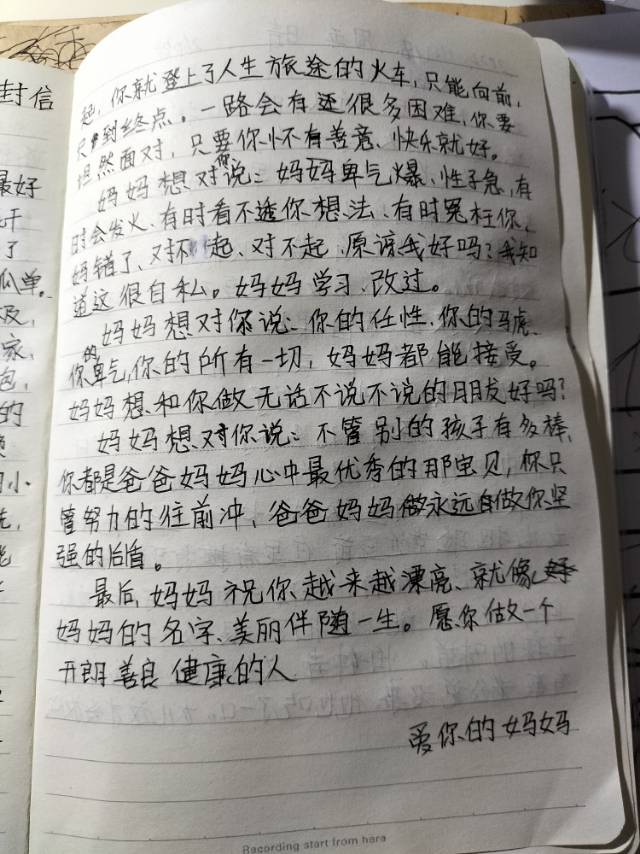 封信
最好
开
了
瓜单。
及,
家、
包,
的
小
起,你就登上了人生旅途的火车,只能向前,
只到终点。一路会有还很多困难,你要
坦然面对,只要你怀有善意、快乐就好。
妈妈想对你说:妈妈脾气爆、性子急,有
时会发火、有时看不透你想法、有时冤枉你、
妈错了、对不起、对不起、原谅我好吗?我知
道这很自私。妈妈学习、改过。
妈妈想对你说:你的任性、你的马虎、
你的脾气,你的所有一切,妈妈都能接受。
妈妈想和你做无话不说不说的朋友好吗?
妈妈想对你说:不管别的孩子有多棒,
你都是爸爸妈妈心中最优秀的那宝贝,你只
管努力的往前冲,爸爸妈妈做永远做你坚
强的后盾。
最后,妈妈祝你越来越漂亮、就像
妈妈的名字、美丽伴随一生。愿你做一个
开朗善良健康的人
爱你的妈妈
Recording start from here